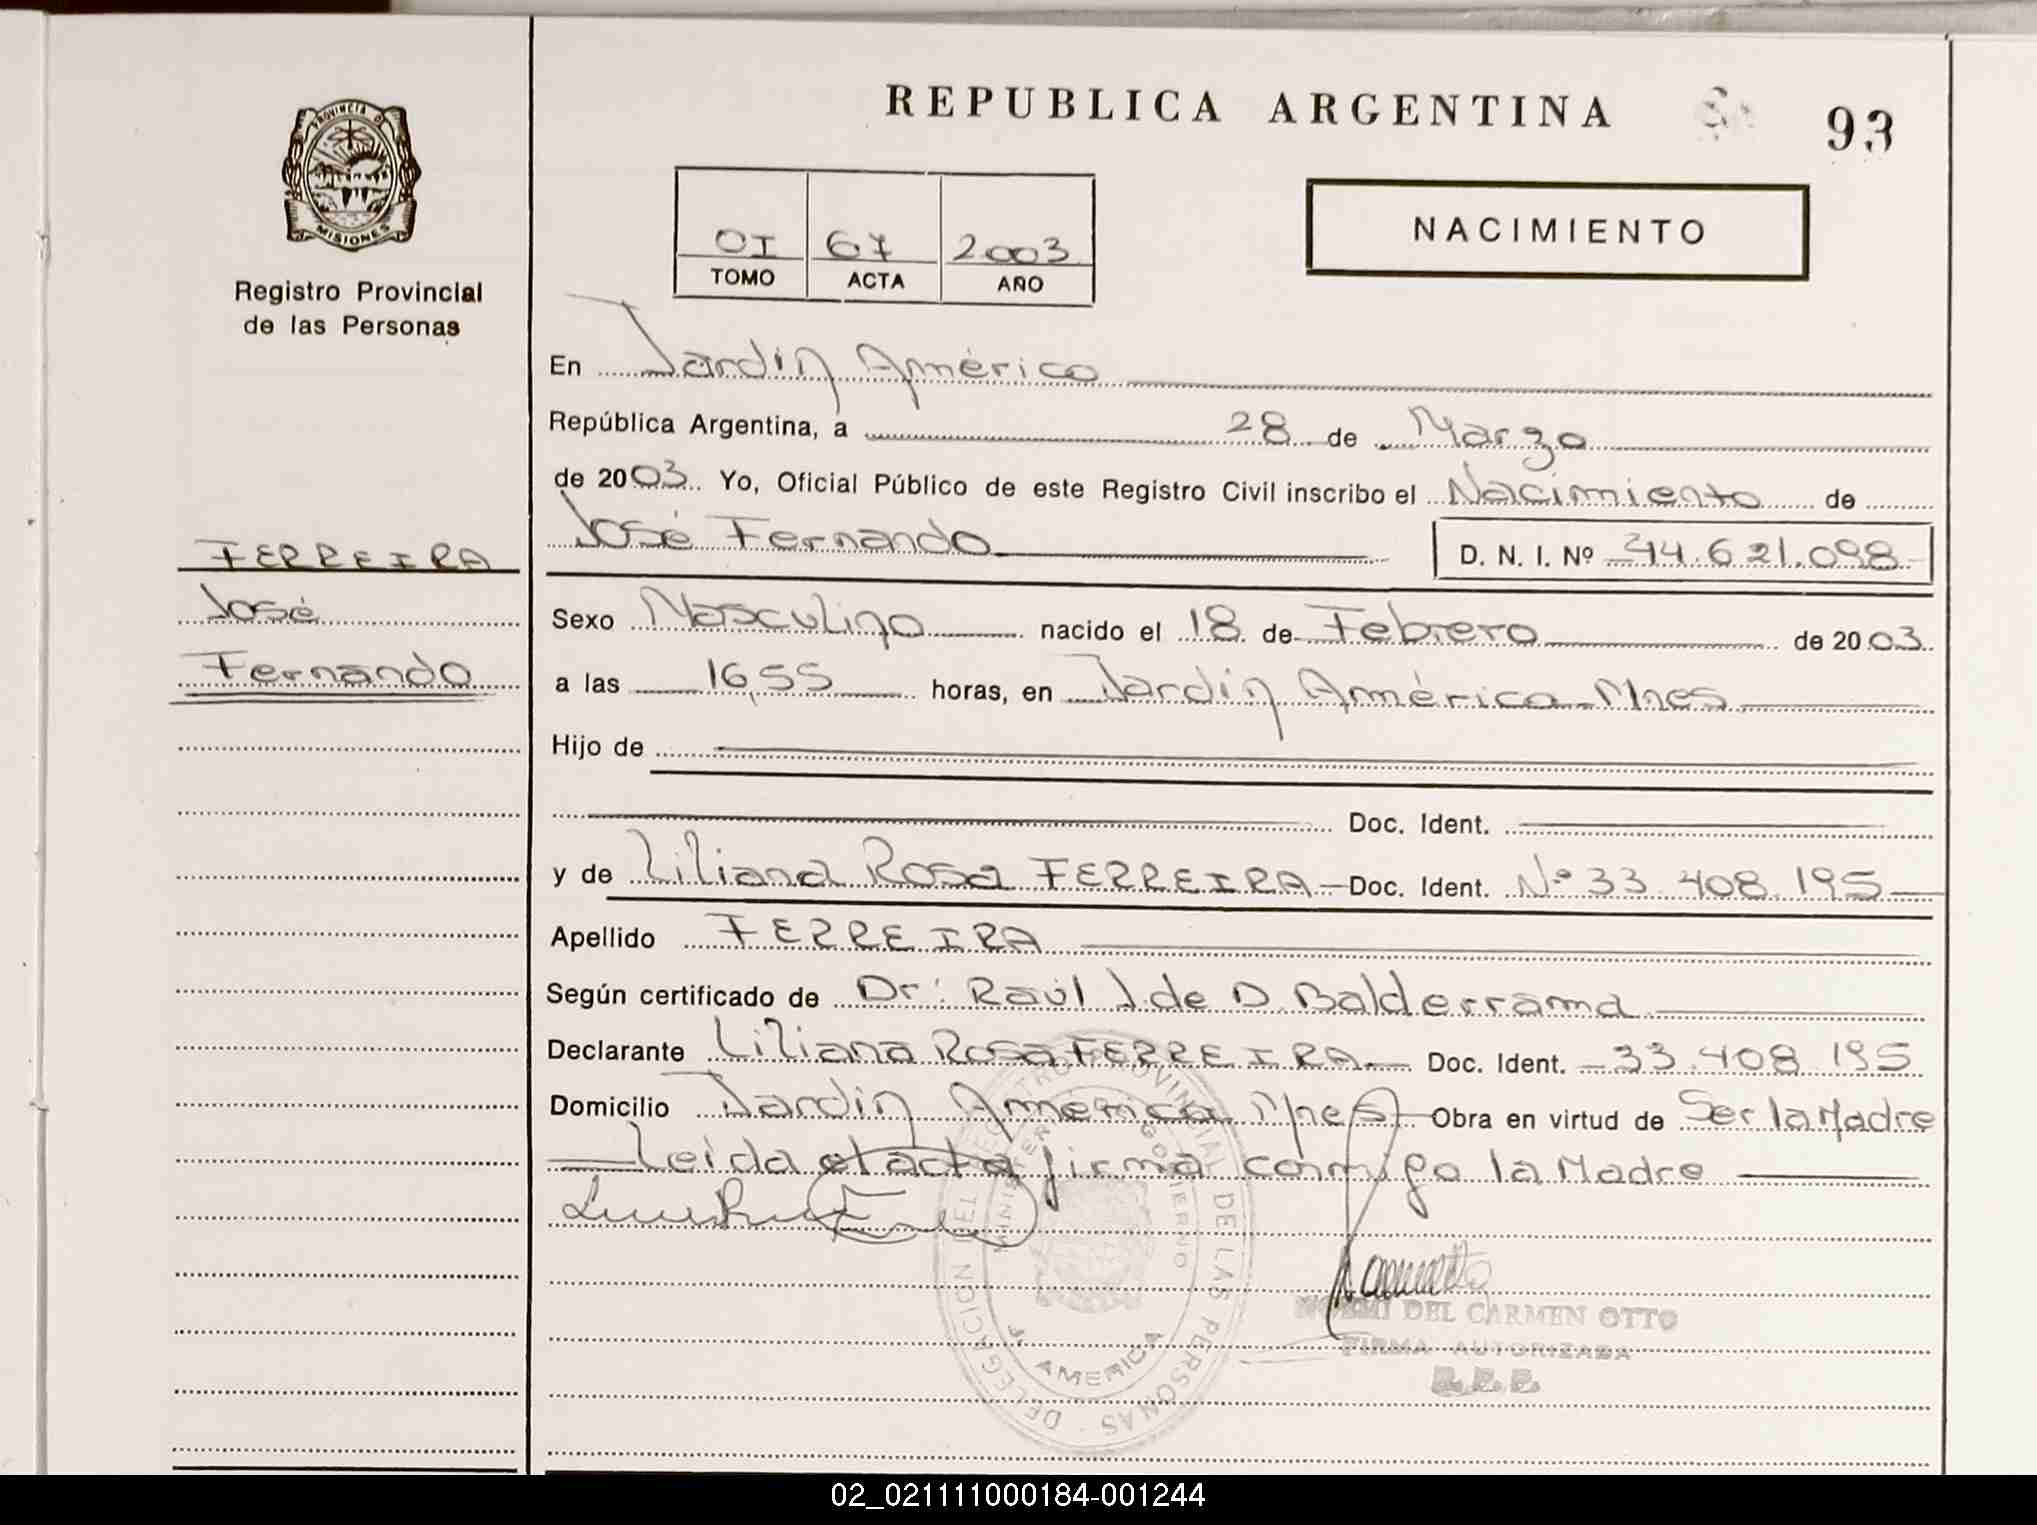 PROVINCIA DE
MISIONES
Registro Provincial
de las Personas
FERREIRA
José
Fernando
REPUBLICA ARGENTINA
93
01 67 2003
TOMO ACTA AÑO
NACIMIENTO
En Jardín América
República Argentina, a 28 de Marzo
de 2003. Yo, Oficial Público de este Registro Civil inscribo el Nacimiento de
José Fernando D. N. I. Nº 44.621.098
Sexo Masculino nacido el 18 de Febrero de 2003
a las 16,55 horas, en Jardín América - Mnes
Hijo de
Doc. Ident.
y de Liliana Rosa FERREIRA - Doc. Ident. Nº 33.408.195
Apellido FERREIRA
Según certificado de Dr: Raúl J. de D. Balderrama
Declarante Liliana Rosa FERREIRA - Doc. Ident. 33.408.195
Domicilio Jardín América Mnes Obra en virtud de Ser la Madre
Leida el acta firma conmigo la Madre
DELEGACION DEL REGISTRO PROVINCIAL DE LAS PERSONAS
MINISTERIO GOBIERNO
J. AMERICA
NOEMI DEL CARMEN OTTO
FIRMA AUTORIZADA
02_021111000184-001244